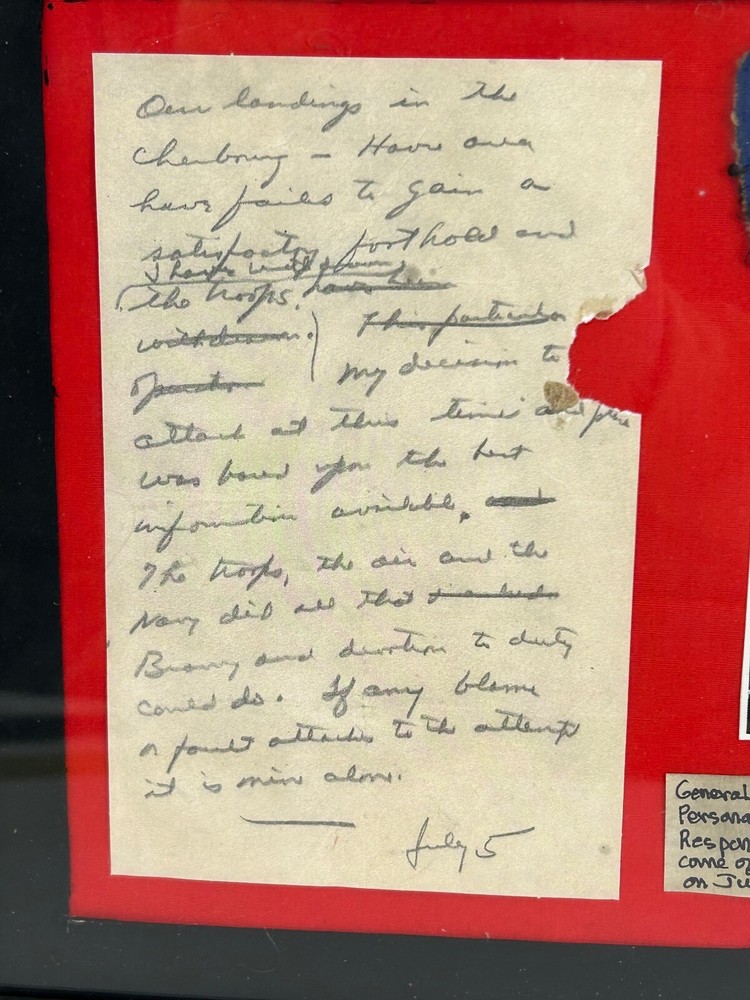 Our landings in the
Cherbourg – Havre area
have failed to gain a
satisfactory foothold and
I have withdrawn
the troops. have been
withdrawn. This particular
operation My decision to
attack at this time and place
was based upon the best
information available, and
The troops, the air and the
Navy did all that
Bravery and devotion to duty
could do. If any blame
or fault attaches to the attempt
it is mine alone.
July 5
General
Persona
Respon
come of
on Ju